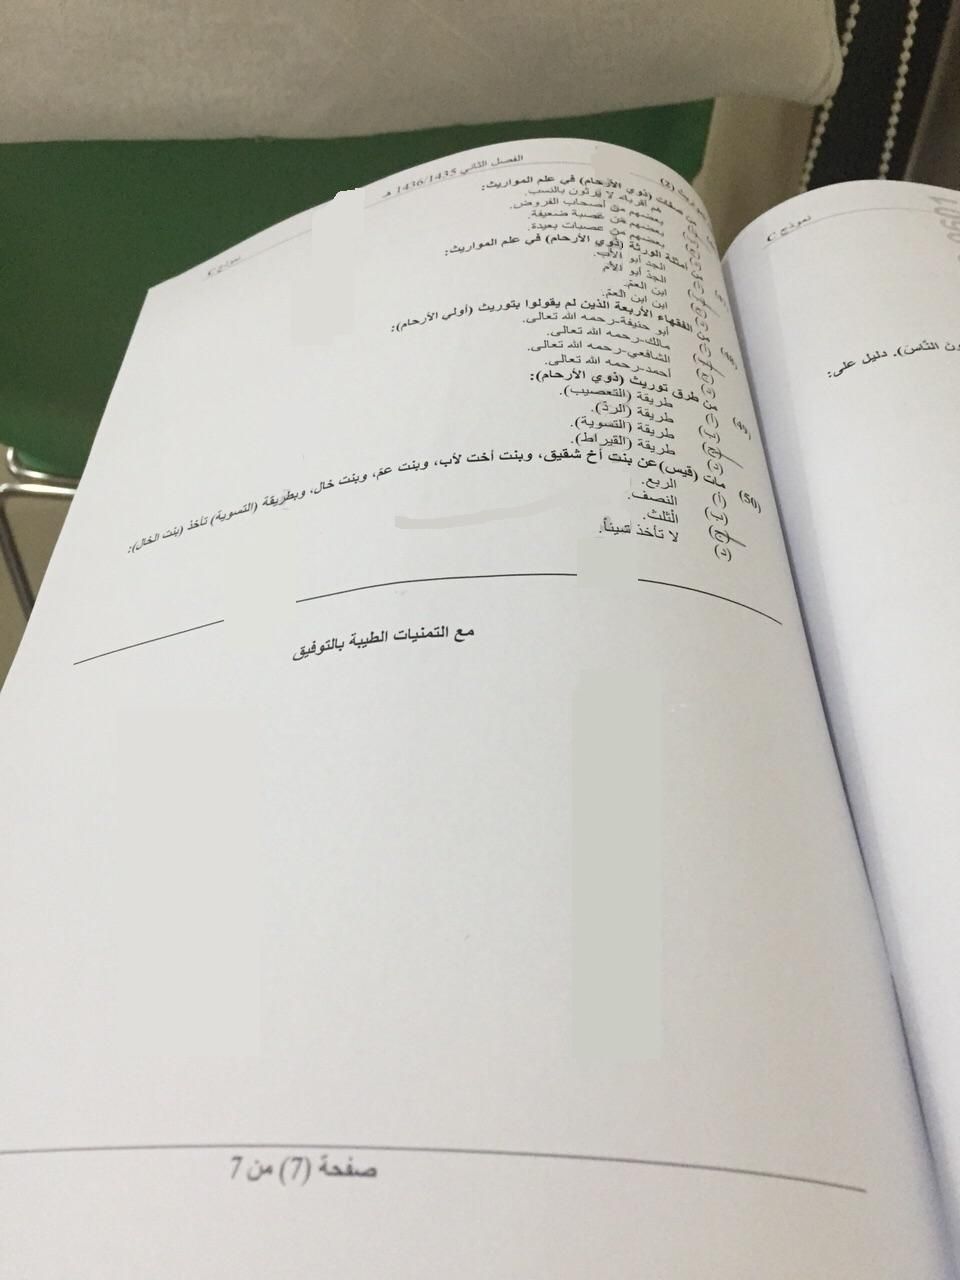 الفصل الثاني 1436/1435 هـ
نموذج C
(2)
من صفات (ذوي الأرحام) في علم المواريث:
هم أقرباء لا يرثون بالنسب.
بعضهم من أصحاب الفروض.
بعضهم من عصبة ضعيفة.
بعضهم من عصبات بعيدة.
أمثلة الورثة (ذوي الأرحام) في علم المواريث:
الجد أبو الأب.
الجد أبو الأم
ابن العم.
ابن ابن العم.
الفقهاء الأربعة الذين لم يقولوا بتوريث (أولي الأرحام):
أبو حنيفة-رحمه الله تعالى.
مالك-رحمه الله تعالى.
الشافعي-رحمه الله تعالى.
أحمد-رحمه الله تعالى.
(49) من طرق توريث (ذوي الأرحام):
طريقة (التعصيب).
طريقة (الردّ).
طريقة (التسوية).
طريقة (القيراط).
(50) مات (قيس) عن بنت أخ شقيق، وبنت أخت لأب، وبنت عم، وبنت خال، وبطريقة (التسوية) تأخذ (بنت الخال):
أ الربع.
ب النصف.
ج الثلث.
د لا تأخذ شيئاً.
مع التمنيات الطيبة بالتوفيق
صفحة (7) من 7
نموذج C
دليل على: